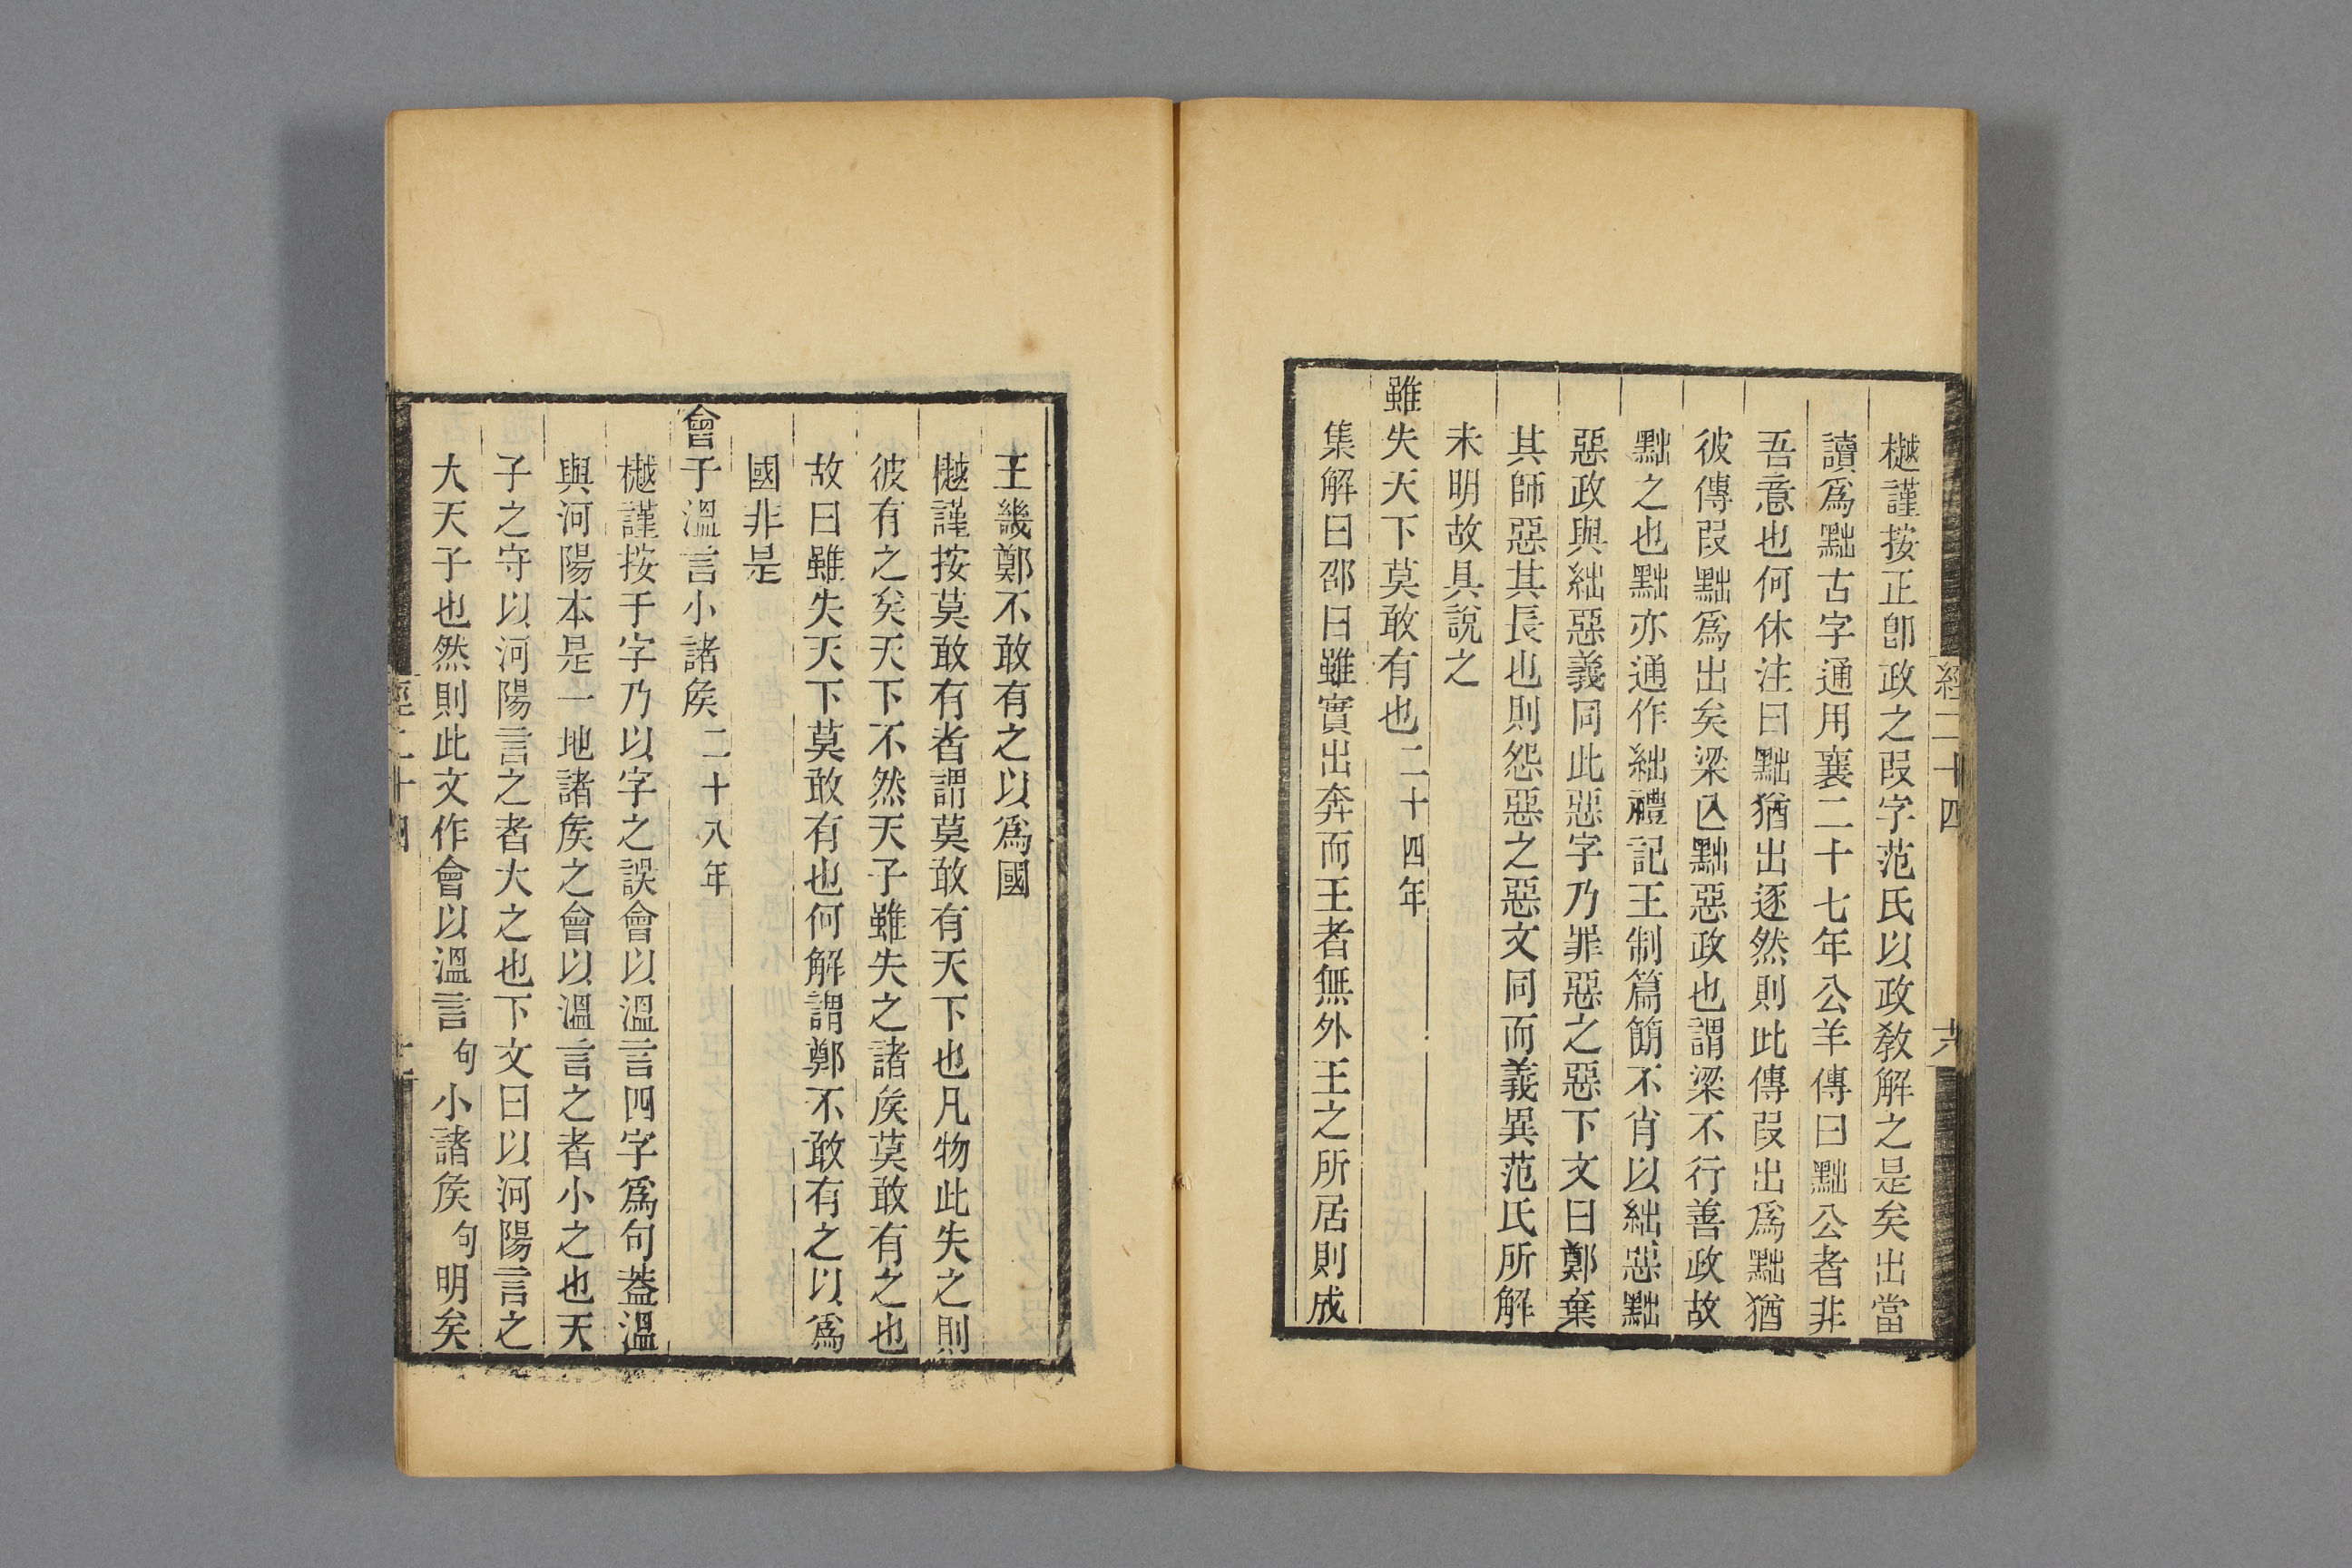 經二十四
六
樾謹按正卽政之叚字范氏以政敎解之是矣出當
讀爲黜古字通用襄二十七年公羊傳曰黜公者非
吾意也何休注曰黜猶出逐然則此傳叚出爲黜猶
彼傳叚黜爲出矣梁亾黜惡政也謂梁不行善政故
黜之也黜亦通作絀禮記王制篇簡不肖以絀惡黜
惡政與絀惡義同此惡字乃罪惡之惡下文曰鄭棄
其師惡其長也則怨惡之惡文同而義異范氏所解
未明故具說之
雖失天下莫敢有也二十四年
集解曰邵曰雖實出奔而王者無外王之所居則成
王畿鄭不敢有之以爲國
樾謹按莫敢有者謂莫敢有天下也凡物此失之則
彼有之矣天下不然天子雖失之諸矦莫敢有之也
故曰雖失天下莫敢有也何解謂鄭不敢有之以爲
國非是
會于溫言小諸矦二十八年
樾謹按于字乃以字之誤會以溫言四字爲句葢溫
與河陽本是一地諸矦之會以溫言之者小之也天
子之守以河陽言之者大之也下文曰以河陽言之
大天子也然則此文作會以溫言句小諸矦句明矣
經二十四